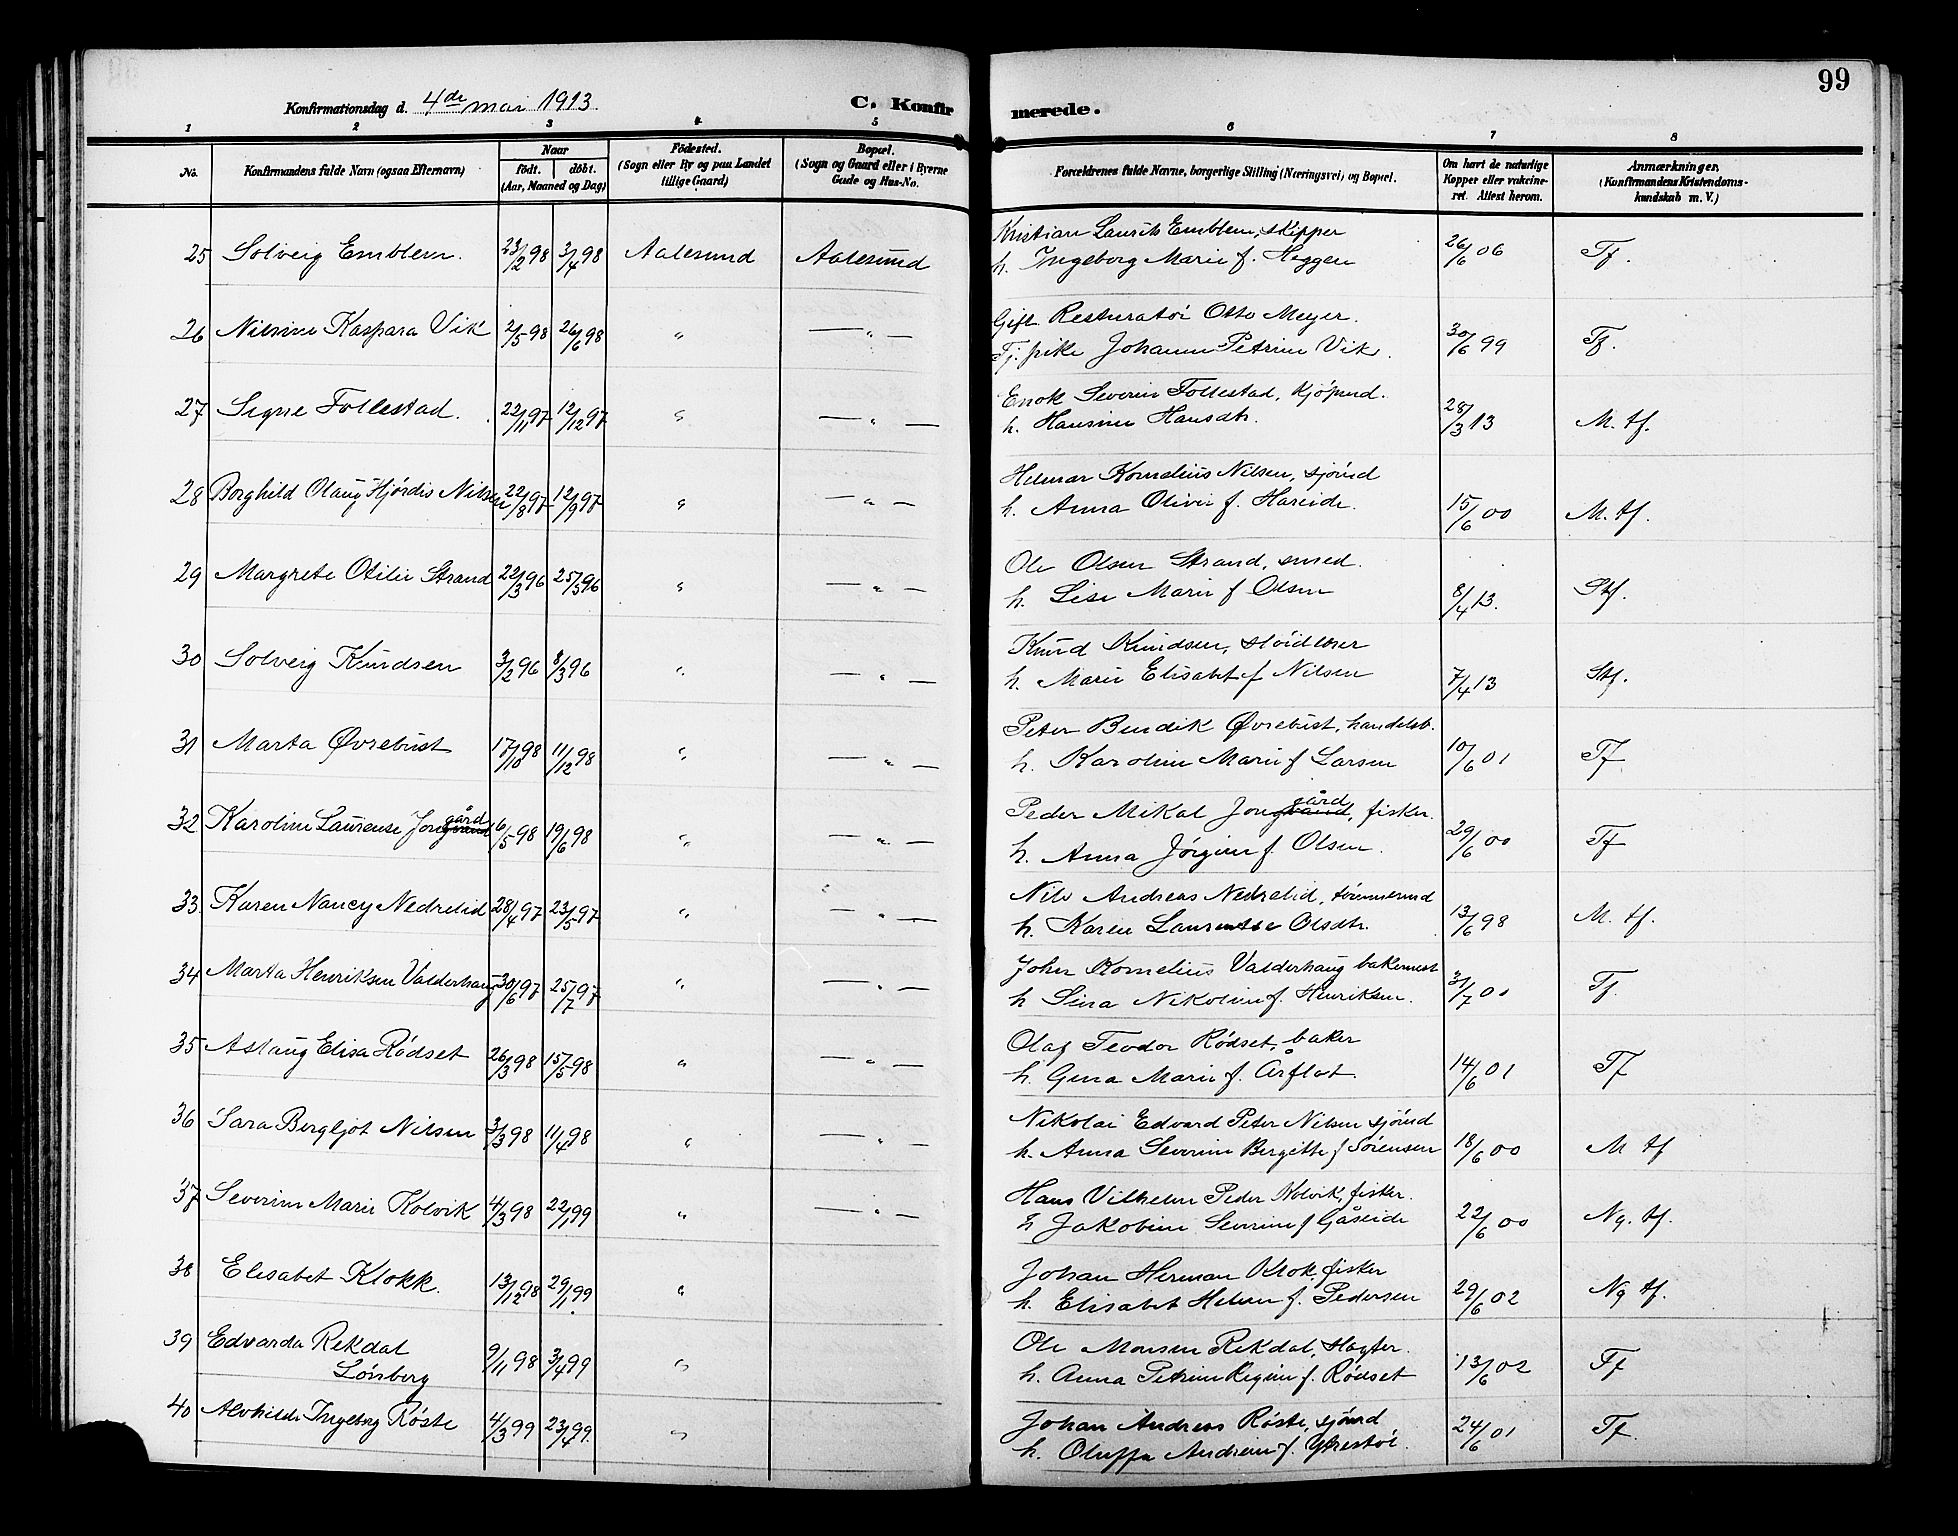 99
Konfirmationsdag d. 4de mai 1913. C. Konfirmerede.
1 2 3 4 5 6 7 8
No. Konfirmandens fulde Navn (ogsaa Efternavn) Naar født. døbt. (Aar, Maaned og Dag) Fødested. (Sogn eller By og paa Landet tillige Gaard) Bopæl. (Sogn og Gaard eller i Byerne Gade og Hus-No. Forældrenes fulde Navne, borgerlige Stilling (Næringsvei) og Bopæl. Om havt de naturlige Kopper eller vakcineret. Attest herom. Anmærkninger, (Konfirmandens Kristendomskundskab m. V.)
25 Solveig Emblem. 23/2 98 3/4 98 Aalesund Aalesund Kristian Laurits Emblem, skipper
h. Ingeborg Marie f. Heggen 26/6 06 Tf.
26 Nilsine Kaspara Vik 2/5 98 26/6 98 " — " — Gift Restauratør Otto Meyer.
Tj. pike Johanne Petrine Vik. 30/6 99 Tf.
27 Signe Follestad. 22/11 97 12/12 97 " — " — Enok Severin Follestad, kjøpmd.
h. Hansine Hansdtr. 28/3 13 M. tf.
28 Borghild Olaug Hjørdis Nilsen 22/8 97 12/9 97 " — " — Helmar Kornelius Nilsen, sjømd
h. Anna Olivie f. Hareide. 15/6 00 M. tf.
29 Margrete Otilie Strand 22/3 96 25/5 96 " — " — Ole Olsen Strand, smed.
h. Lise Marie f Olsen 8/4 13. Stf.
30 Solveig Knudsen 3/2 96 8/3 96 " — " — Knud Knudsen, sløidlærer
h. Marie Elisabet f Nilsen 7/4 13 Stf.
31 Marta Øvrebust 17/10 98 11/12 98 " — " — Peter Bendik Øvrebust, handelsb.
h. Karoline Marie f Larsen 10/6 01 Tf
32 Karoline Laurense Jongård 6/5 98 19/6 98 " — " — Peder Mikal Jongård, fisker.
h. Anna Jørgine f. Olsen. 29/6 00 Tf
33 Karen Nancy Nedrelid 28/4 97 23/5 97 " — " — Nils Andreas Nedrelid, tømmermd
h. Karen Laurentse Olsdtr. 13/6 98 M. tf.
34 Marta Henriksen Valderhaug 30/6 97 25/7 97 " — " — Johan Kornelius Valderhaug bakermest
h Sina Nikoline f. Henriksen. 31/7 00 Tf.
35 Aslaug Elisa Rødset 26/3 98 15/5 98 " — " — Olaf Teodor Rødset, baker
h. Gina Marie f. Årflot. 14/6 01 Tf
36 Sara Bergljot Nilsen 3/3 98 11/4 98 " — " — Nikolai Edvard Peter Nilsen sjømd
h. Anna Severine Bergitte f Sørensen 18/6 00 M tf
37 Severine Marie Kolvik 4/3 98 22/1 99 " — " — Hans Vilhelm Peder Kolvik, fisker.
h Jakobine Severine f Gåseide 22/6 00 Ng. tf.
38 Elisabet Klokk. 13/12 98 29/1 99 " Johan Herman Klok, fisker
h. Elisabet Helene f. Pedersen 29/6 02 Ng tf.
39 Edvarda Rekdal
Lønberg 9/11 98 3/4 99 " Ole Monsen Rekdal, Slagter.
h. Anna Petrine Regine f. Rødset 13/6 02 Tf
40 Alvhilde Ingeborg Røste 4/3 99 23/4 99. " Johan Andreas Røste, sjømd
h. Oluffa Andrine f. Ytrestøl. 24/6 01 Tf.